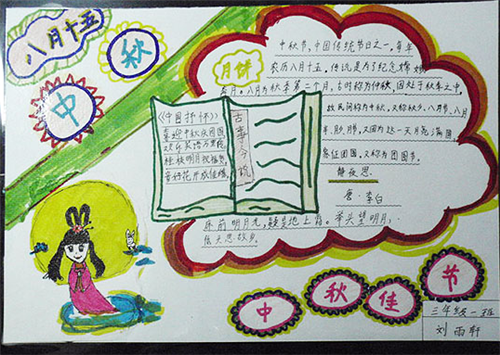 八月十五
中
秋
月饼
中秋节,中国传统节日之一,每年
农历八月十五,传说是为了纪念嫦娥
奔月。八月为秋季第二个月,古时称为仲秋,因处于秋季之中
故民间称为中秋,又称秋夕、八月节、八月
又因为这一天月亮满圆
象征团圆,又称为团圆节。
静夜思
唐·李白
床前明月光,疑是地上霜。举头望明月,
低头思故乡。
《中国抒怀》
喜迎中秋庆团圆
古事今说
中秋佳节
三年级一班
刘雨轩